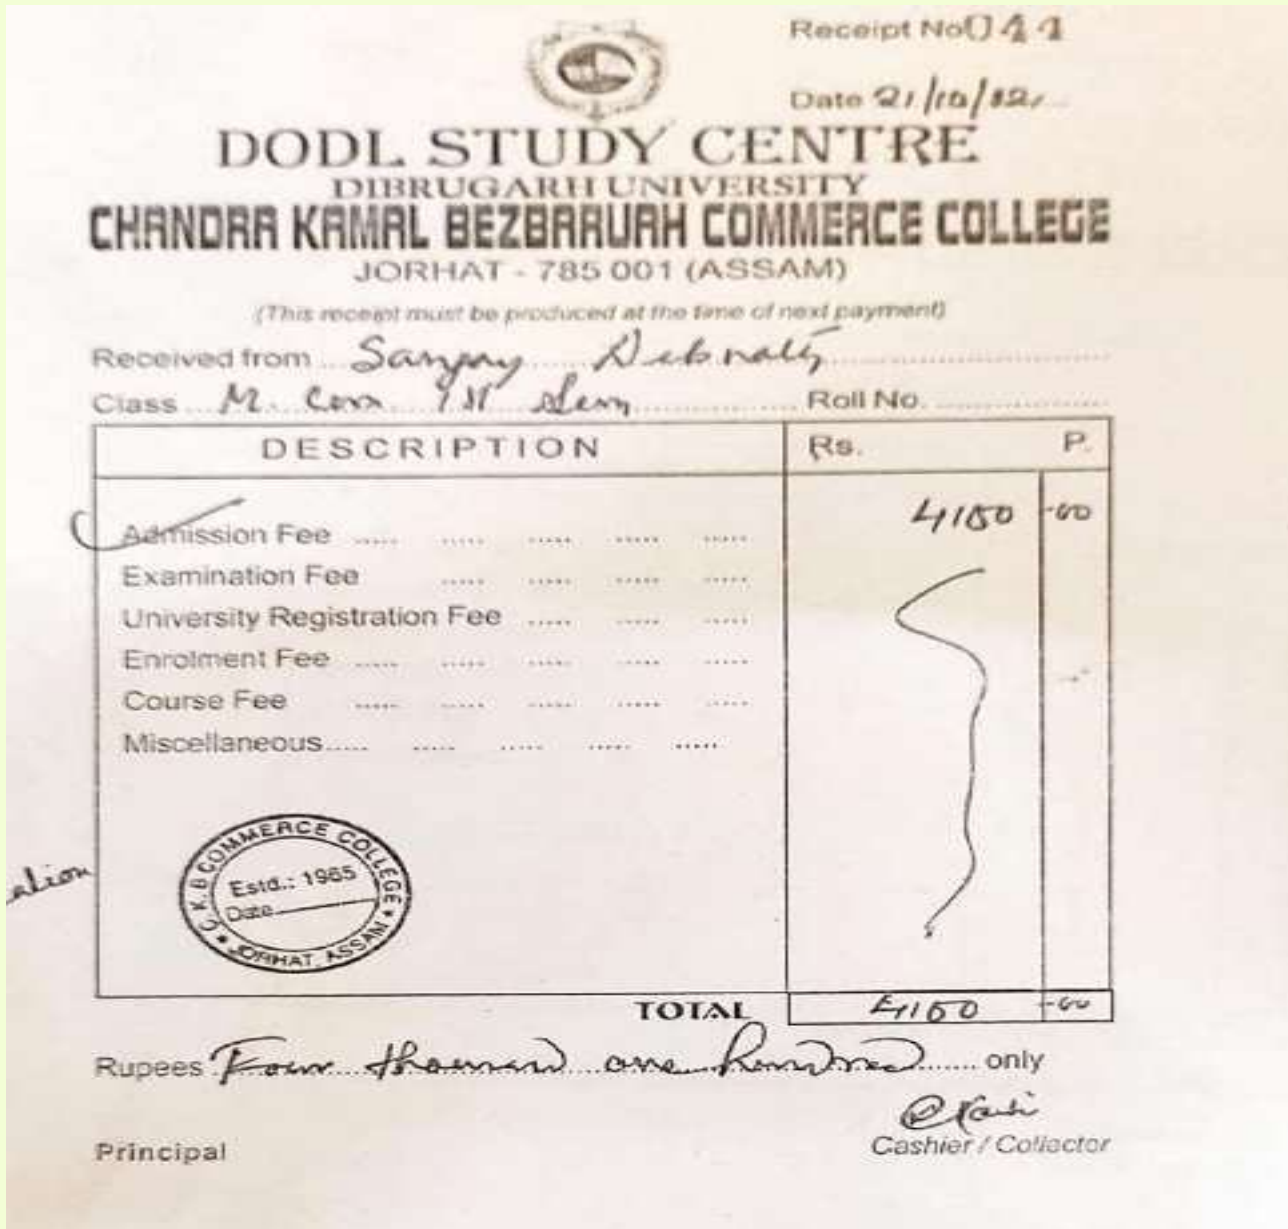 Receipt No 044
Date 21/10/12
DODL STUDY CENTRE
DIBRUGARH UNIVERSITY
CHANDRA KAMAL BEZBARUAH COMMERCE COLLEGE
JORHAT - 785 001 (ASSAM)
(This receipt must be produced at the time of next payment)
Received from Sanjay Debnath
Class M. Com 1st Sem Roll No.
DESCRIPTION Rs. P.
Admission Fee 4100 -00
Examination Fee
University Registration Fee
Enrolment Fee
Course Fee
Miscellaneous
C. K. B COMMERCE COLLEGE
Estd.: 1965
Date
JORHAT, ASSAM
TOTAL 4100 -00
Rupees Four thousand one hundred only
Cashier / Collector
Principal